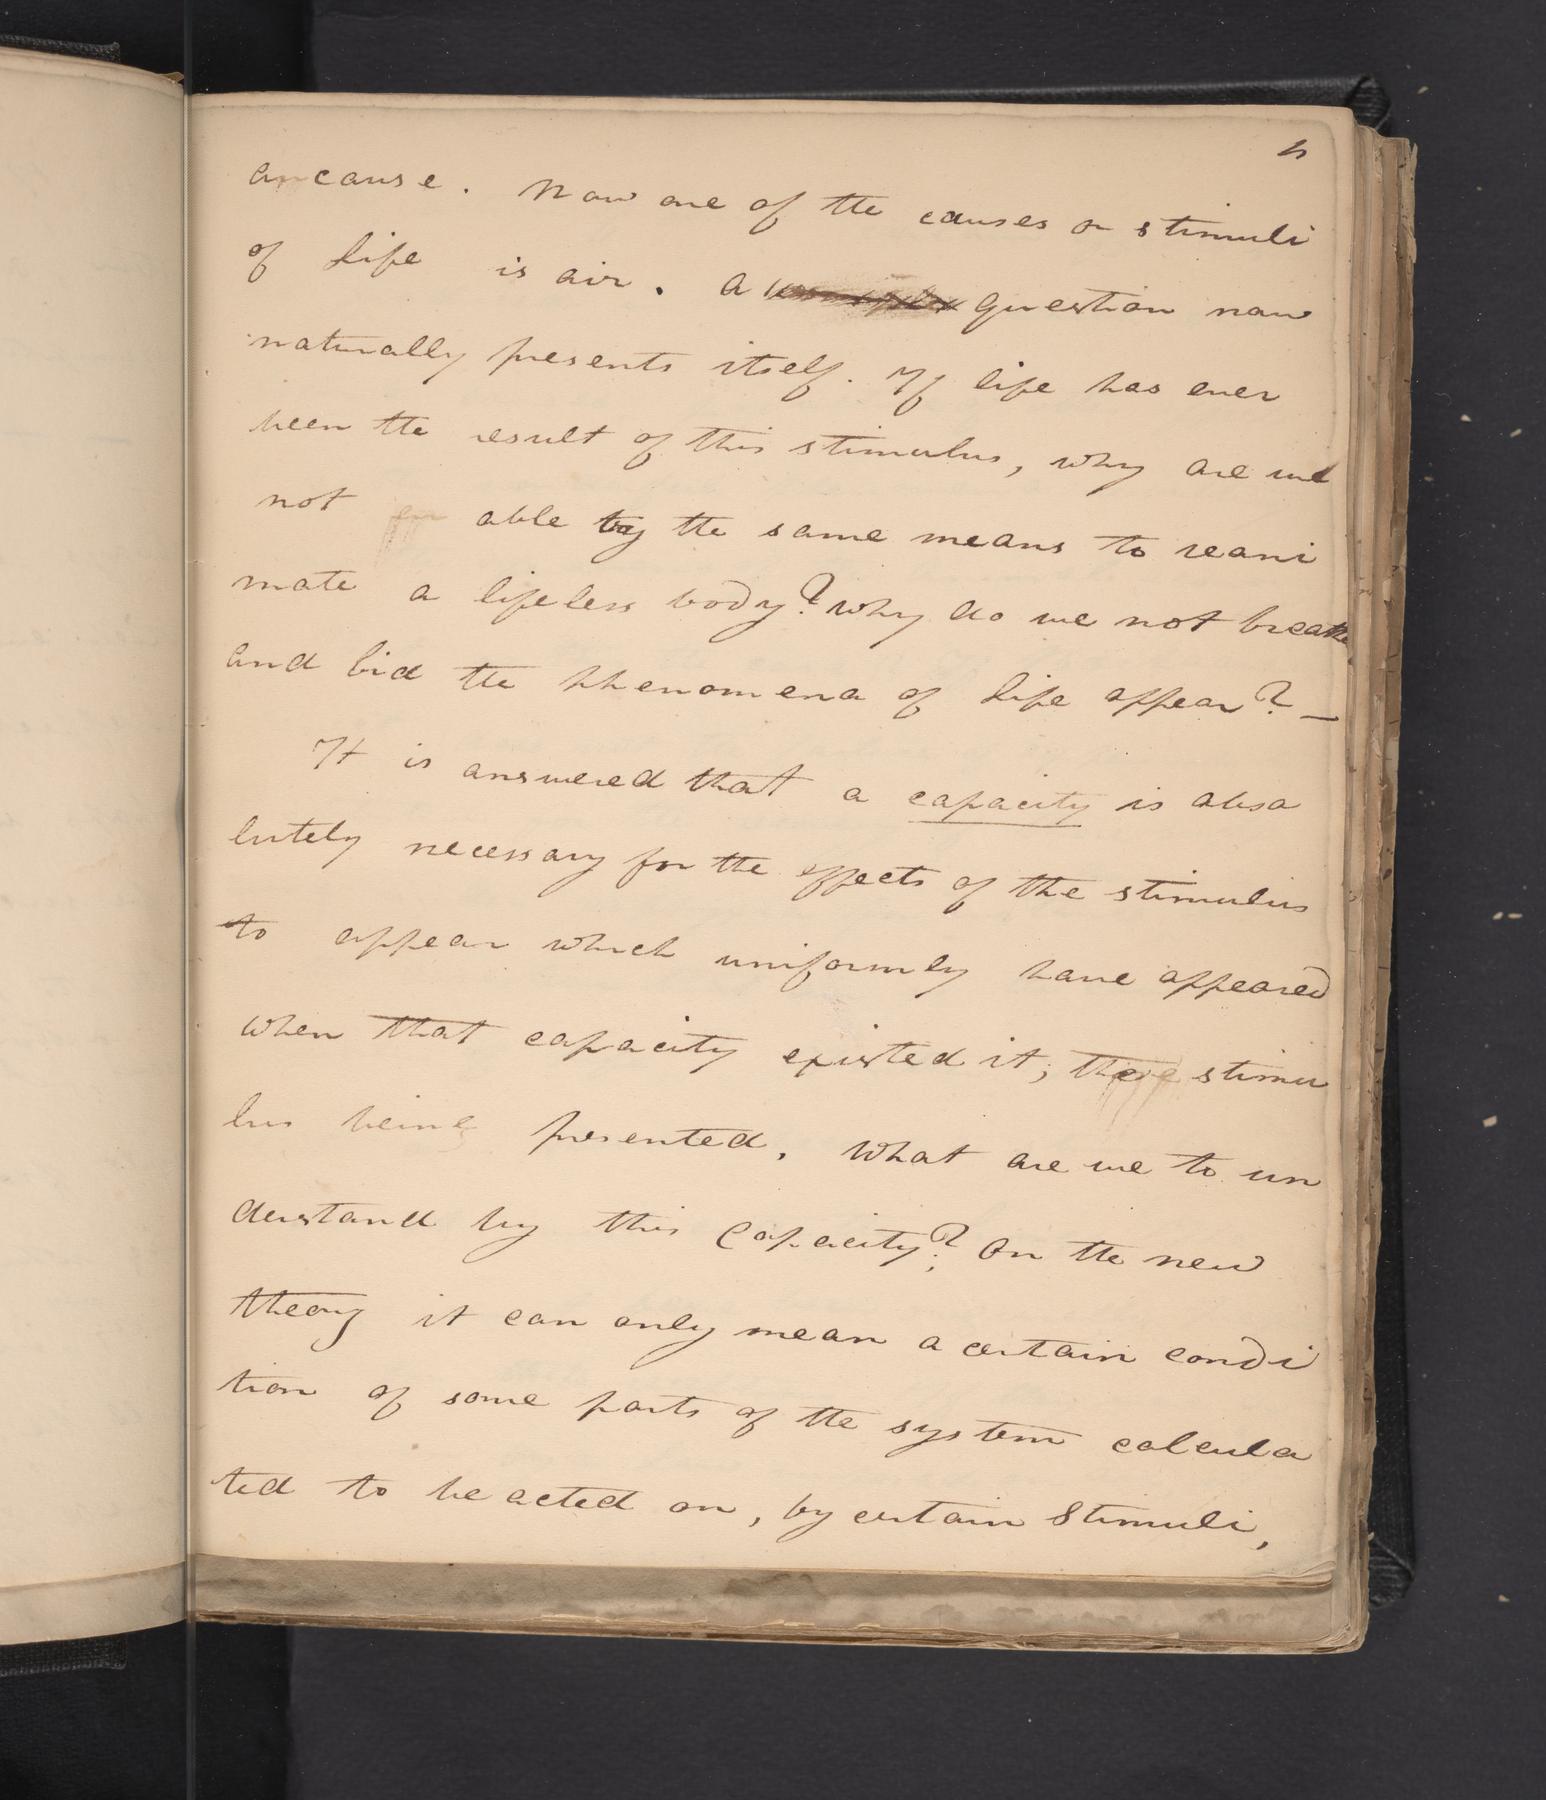 an cause. Now one of the causes or stimuli
of life is air. A question now
naturally presents itself. If life has ever
been the result of this stimulus, why are we
not able by the same means to reani
mate a lifeless body? Why do we not breathe
and bid the phenomena of life appear? —
It is answered that a capacity is abso
lutely necessary for the effects of the stimulus
to appear which uniformly have appeared
when that capacity existed it; these stimu
lus being presented. What are we to un
derstand by this Capacity? On the new
theory it can only mean a certain condi
tion of some parts of the system calcula
ted to be acted on, by certain Stimuli,